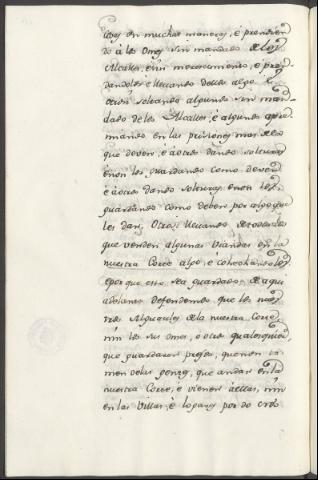 dos en muchas maneras, é prendien
do á los Omes sin mandado de los
Alcalles, é sin merecimiento, é pren-
dandoles é llevando dellos algo. E
otrosi soltando algunos sin man-
dado de los Alcalles, é á algunos apre
miando en las prisiones mas de lo
que deven, é á otros dando solturas
é non los guardando como deven
é á otros dando solturas, é non los
guardando como deben por algo que
les dan; Otrosi llevando de todos los
que venden algunas viandas en la
nuestra Corte algo, é cohechandolos
é por que esto sea guardado de aqui
adelante defendemos que los nues
tros Alguaciles de la nuestra Corte,
nin los sus omes, é otros qualesquier
que guardaren presos, que non to
men de las gentes, que andan en la
nuestra Corte, é vienen á ella, nin
en las Villas, é logares por do